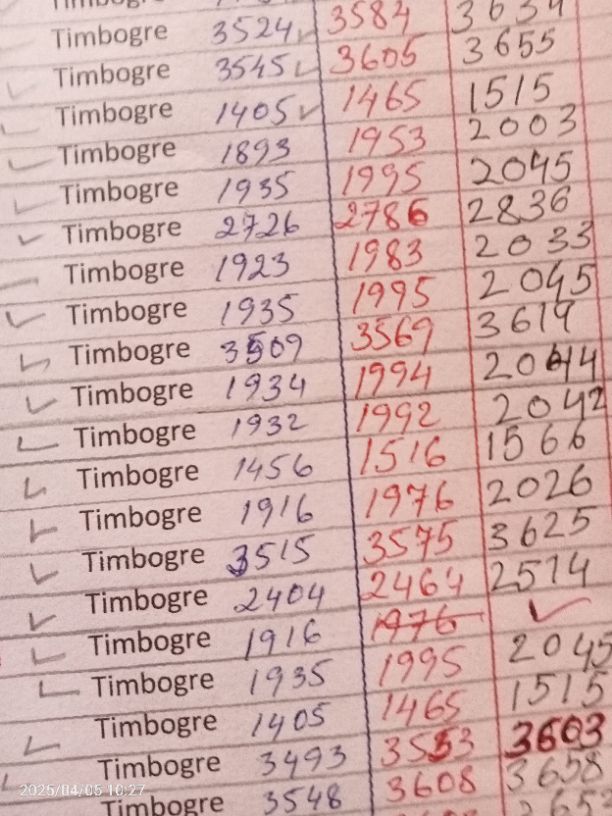 Timbogre 3524 3584
Timbogre 3545 3605 3655
Timbogre 1405 1465 1515
Timbogre 1893 1953 2003
Timbogre 1935 1995 2045
Timbogre 2726 2786 2836
Timbogre 1923 1983 2033
Timbogre 1935 1995 2045
Timbogre 3509 3569 3619
Timbogre 1934 1994 2044
Timbogre 1932 1992 2042
Timbogre 1456 1516 1566
Timbogre 1916 1976 2026
Timbogre 3515 3575 3625
Timbogre 2404 2464 2514
Timbogre 1916 1976
Timbogre 1935 1995 2045
Timbogre 1405 1465 1515
Timbogre 3493 3553 3603
Timbogre 3548 3608 3658
2025/04/05 10:27